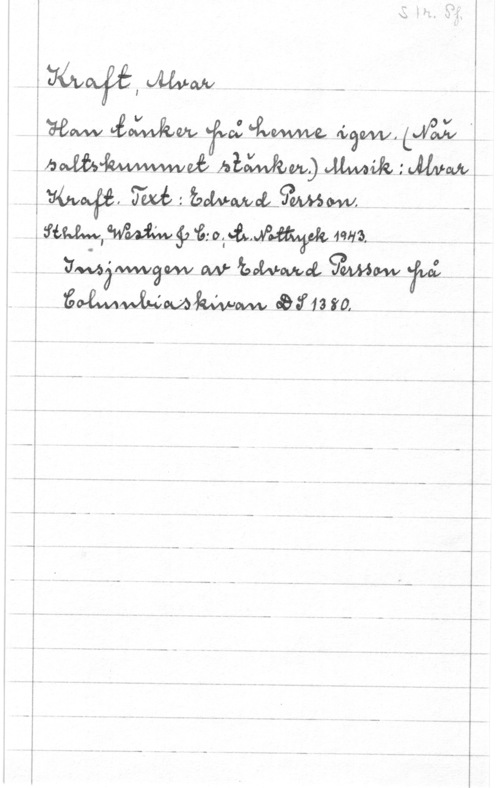 S tr. Pf.
Kraft, Alvar
Han tänker på henne igen. (När
saltskummet stänker.) Musik: Alvar
Kraft. Text: Edvard Persson.
Sthlm, Westin & C:o, tr. Nottryck 1943.
Insjungen av Edvard Persson på
Columbiaskivan DS 1380.